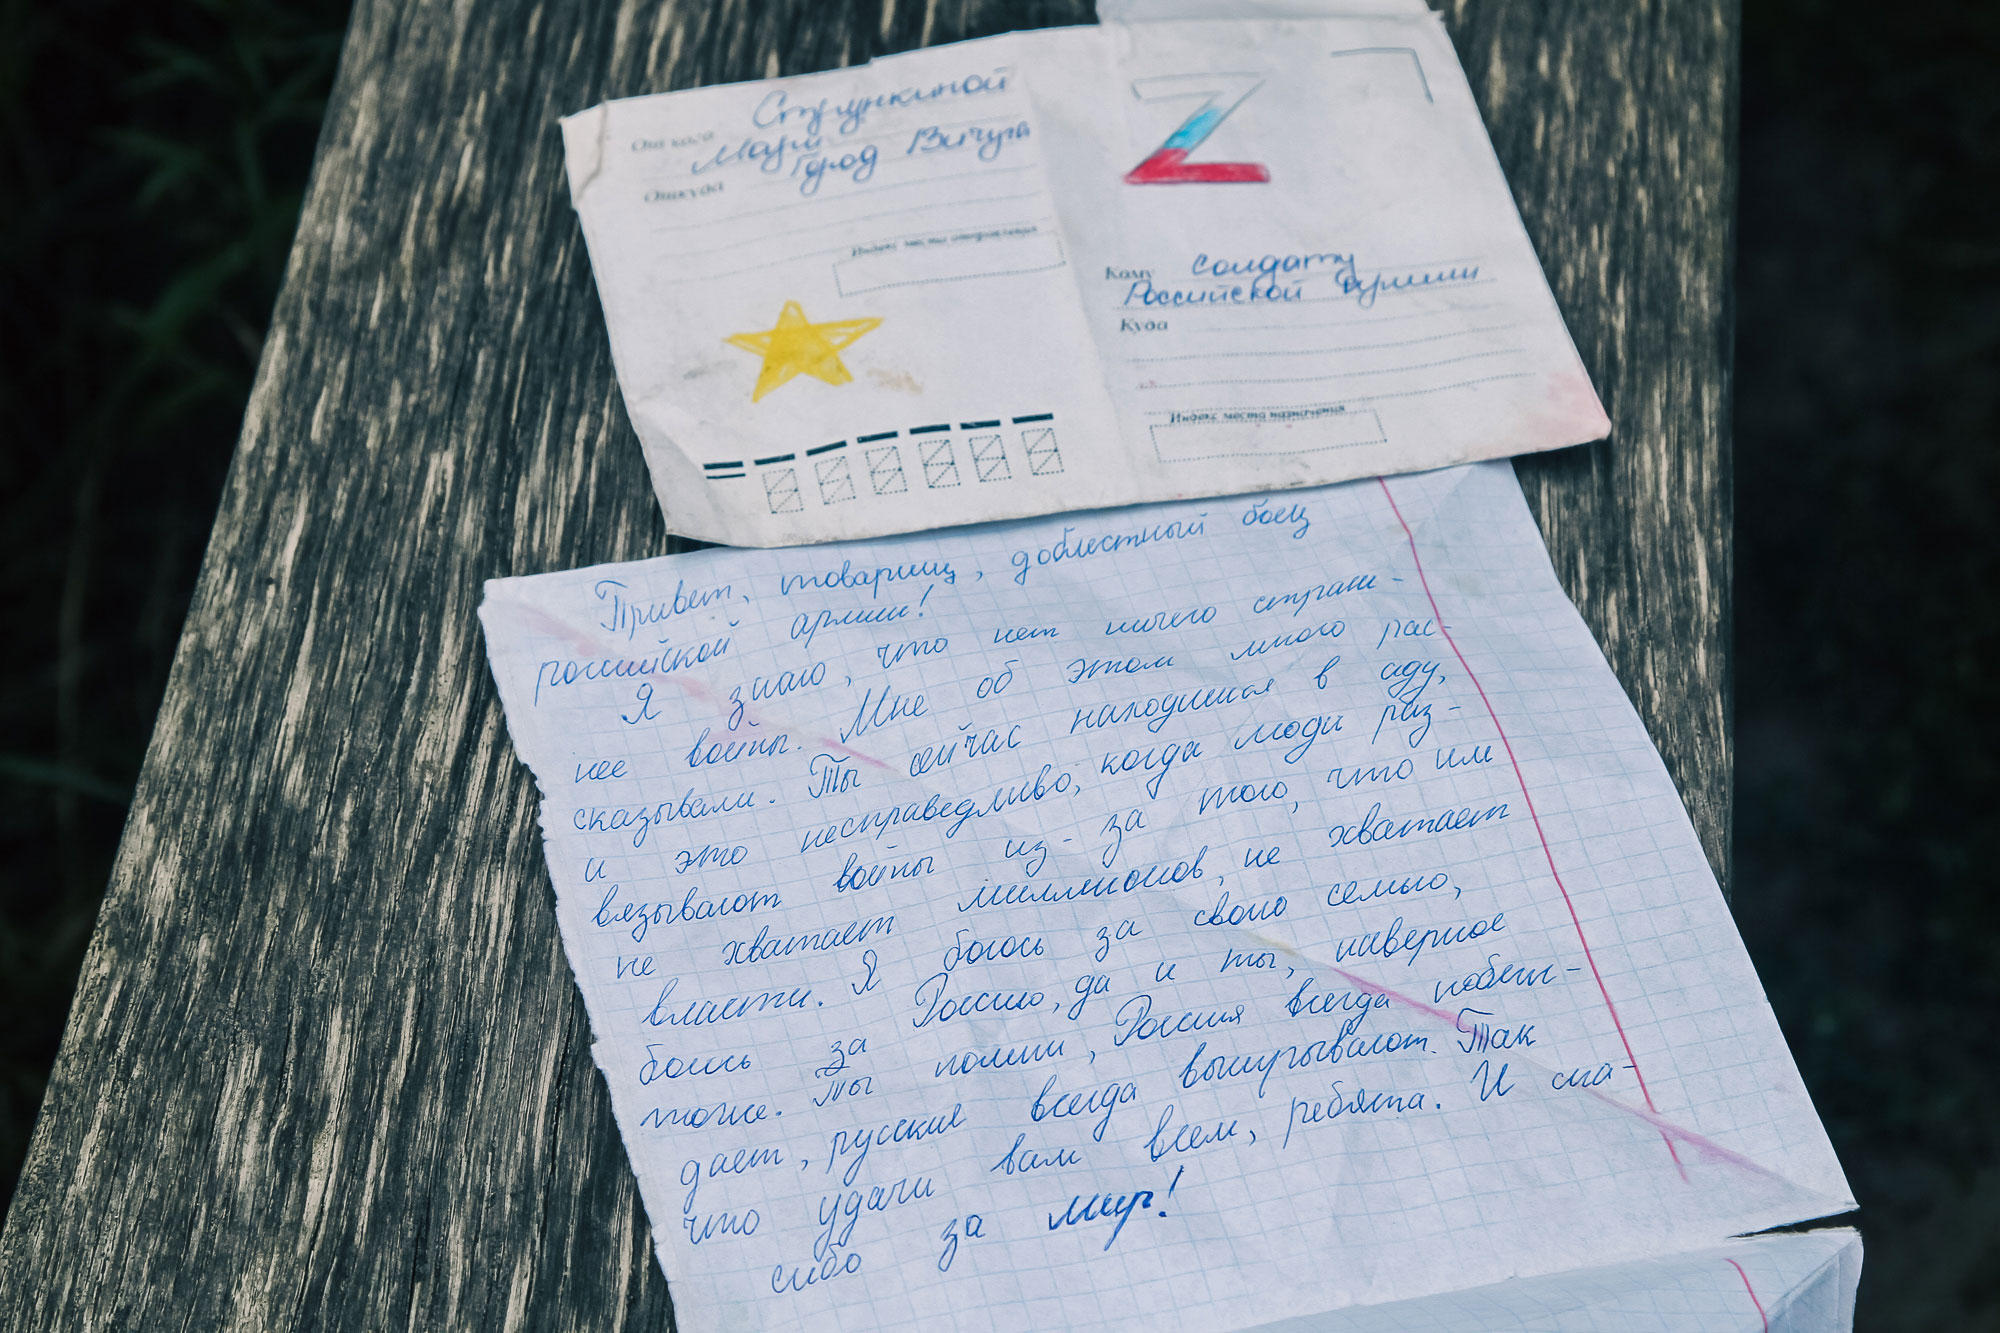 От кого Стрункиной
Марии
Город Вичуга
Откуда
Индекс места отправления
Z
Кому Солдату
Российской Армии
Куда
Индекс места назначения
Привет, товарищ, доблестный боец
российской армии!
Я знаю, что нет ничего страш-
нее войны. Мне об этом много рас-
сказывали. Ты сейчас находишься в аду,
и это несправедливо, когда люди раз-
вязывают войны из-за того, что им
не хватает миллионов, не хватает
власти. Я боюсь за свою семью,
боюсь за Россию, да и ты, наверное
тоже. Ты помни, Россия всегда побеж-
дает, русские всегда выигрывают. Так
что удачи вам всем, ребята. И спа-
сибо за мир!